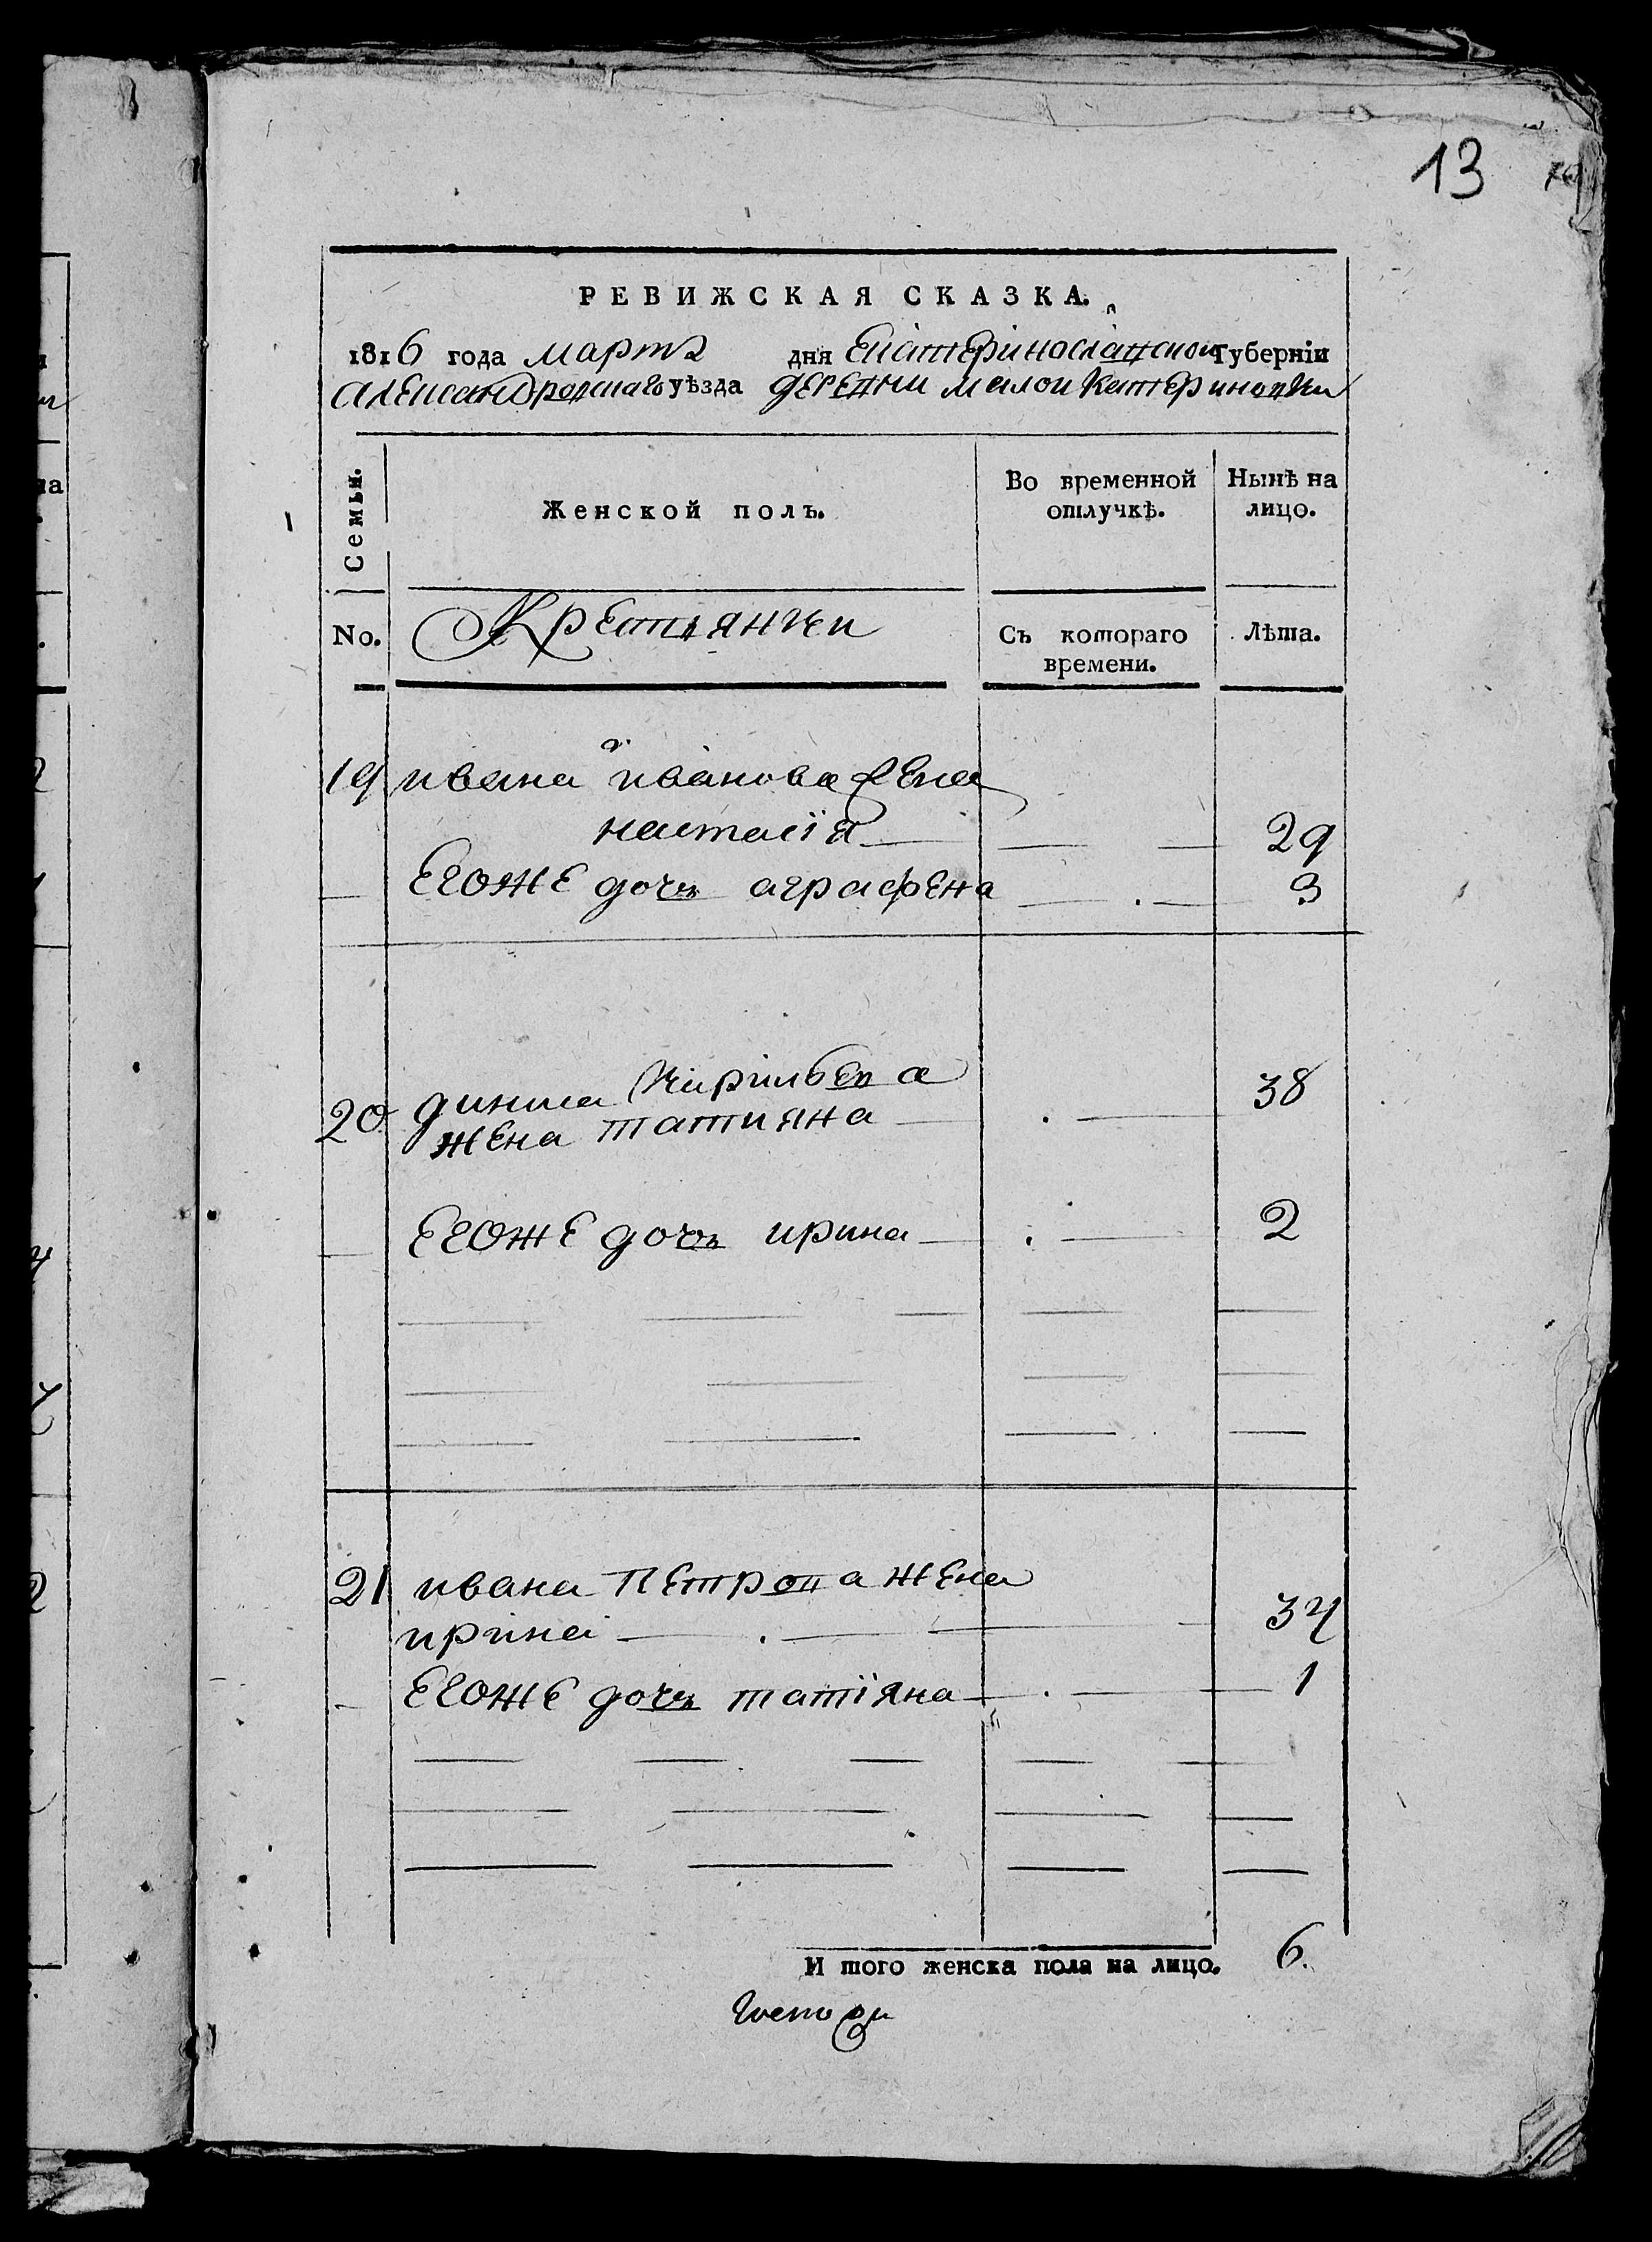 13
РЕВИЖСКАЯ СКАЗКА.
1816 года Мартъ дня Екатеринославской Губернiи
Александровскаго уѣзда деревни малои Катериновки
Семьи.
Женской полъ.
Во временной отлучкѣ.
Нынѣ на лицо.
No.
Крестьянки
Съ котораго времени.
Лѣта.
19 ивана иванова жена
настасїя 29
Егоже дочь аграфена 3
20 диниса Кирильева 38
жена татияна
Егоже дочь ирина 2
21 ивана Петрова жена
ирина 34
Егоже дочь татїяна 1
И того женска пола на лицо. 6.